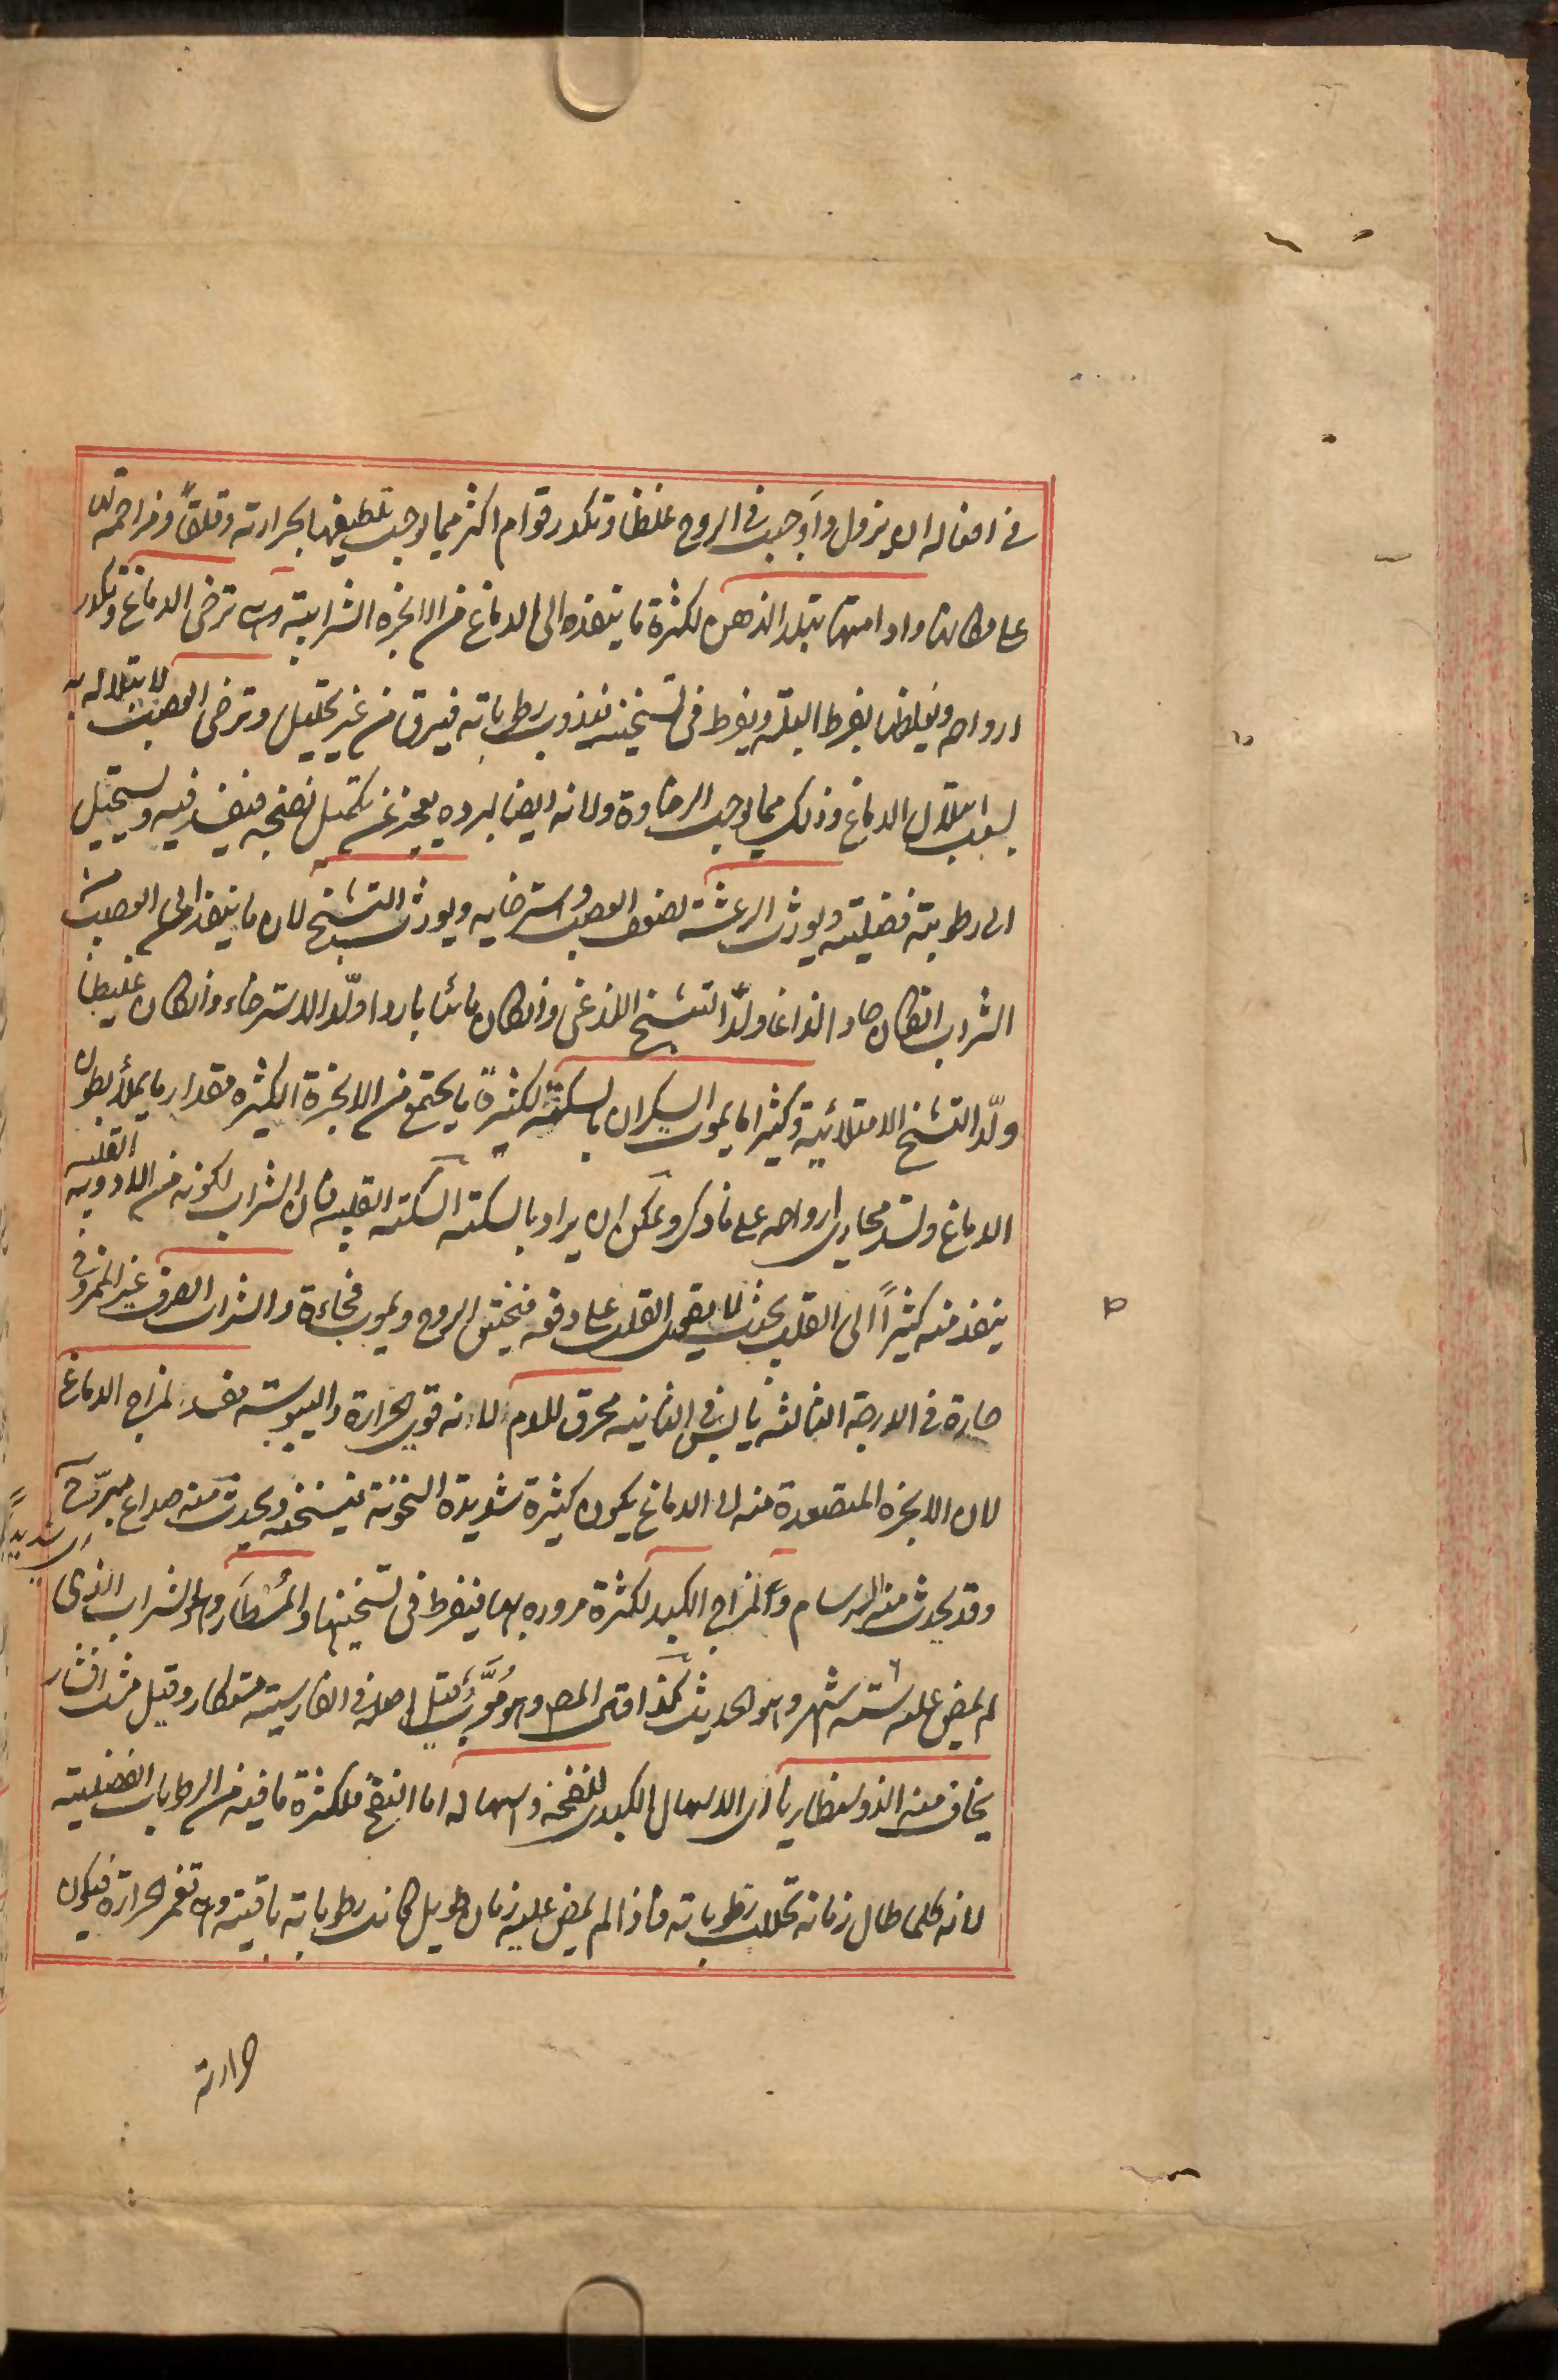 في افعاله الا ويزول واوجبت في الروح غلظا وتكدر قوام اكثر مما يوجب تلطيفها بحرارته وقلقًا ومزاحمة لها
على مكانها وادامتها تبلد الذهن لكثرة ما ينفذه الى الدماغ من الابخرة الشرابية وهى ترخى الدماغ وتكدر
ارواحه ويغلظها بفرط البلة ويفرط فى تسخينه فيذوب رطوباته فيرق من غير تحليل وترخى العصب لابتلاله به
بسبب ابتلال الدماغ وذلك مما يوجب الرخاوة ولانه ايضا لبرده يعجز عن تكميل نضجه فيفسد فيه ويستحيل
الى رطوبة فضلية ويورث الرعشة لضعف العصب واسترخايه ويورث التشنج لان ما ينفذ الى العصب من
الشراب انكان حادا لذاعا ولّد التشنج اللذعى وانكان مائيا باردا ولّد الاسترخاء وانكان غليظا
ولّد التشنج الامتلائية وكثيرا ما يموت السكران بالسكتة لكثرة ما يجتمع من الابخرة الكثيرة مقدار ما يملأ بطون
الدماغ ولسد مجارى ارواحه على ما ذكر ويمكن ان يراد بالسكتة السكتة القلبية فان الشراب لكونه من الادوية القلبية
ينفذ منه كثيرًا الى القلب بحيث لا يقوى القلب على دفعه فيختنق الروح ويموت فجاءة والشراب الصرف غير الممزوج
حارة في الدرجة الثالثة يابس في الثانية محرق للدم لانه قوى الحرارة واليبوسة مفسد لمزاج الدماغ
لان الابخرة المتصعدة منه الى الدماغ يكون كثيرة شديدة السخونة فيسخنه ويحدث منه صداع مبرّح
اى شديدًا
وقد يحدث منه السرسام ولمزاج الكبد لكثرة مروره بها فيفرط فى تسخينها والمُسْطَار وهو الشراب الذى
لم يمض عليه ستة اشهر وهو الحديث كذا فى المص وهو مُعرَّب قيل اصله في الفارسية مستكار وقيل مشت افشار
يخاف منه الذوسنطاريا اى الاسهال الكبدى لنفخه واسهاله اما النفخ فلكثرة ما فيه من الرطوبات الفضلية
لانه كلما طال زمانه تحللت رطوباته فاذا لم يمض عليه زمان طويل كانت رطوباته باقية وهى تغمر الحرارة فيكون
حرارته